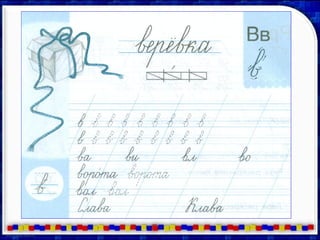 верёвка
Вв
в
в в в в в в в в в в
в в в в в в в в в в
ва ви вл во
ворота ворота
вол вол
Слава Клава
в